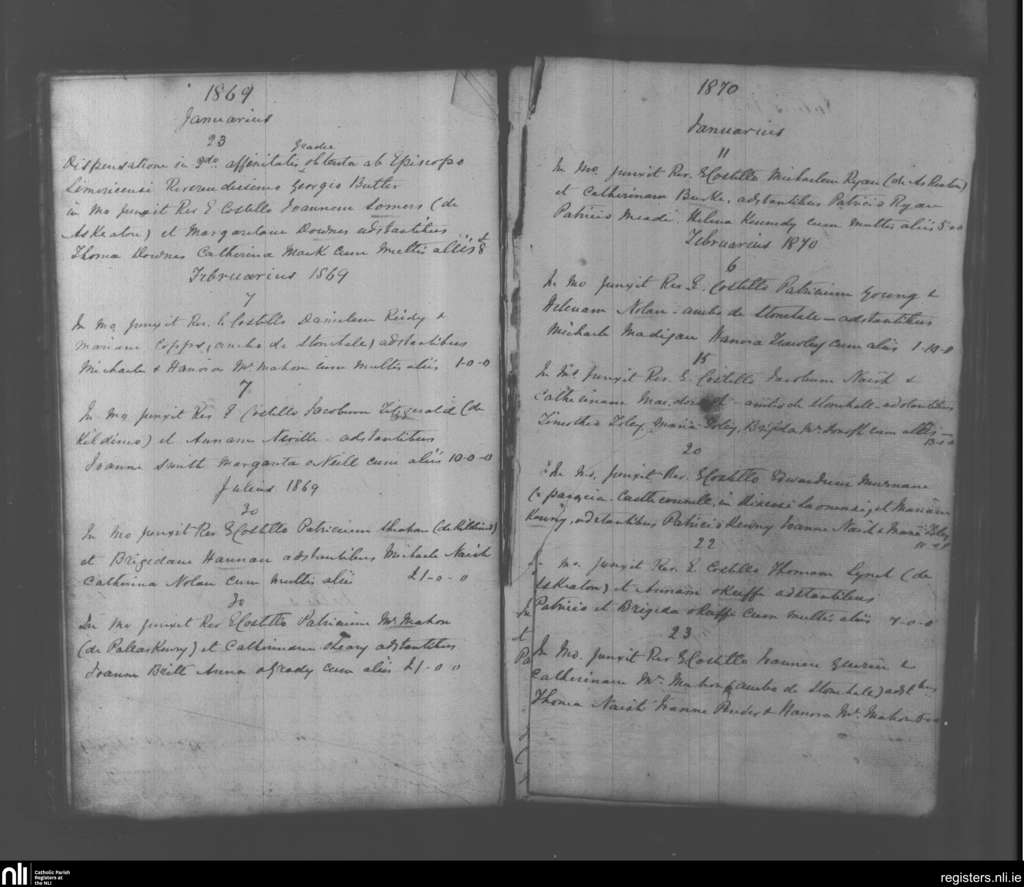 1869
Januarius
23
gradu
Dispensatione in 2do affinitatis obtenta ab Episcopo
Limericensi Reverendissimo Georgio Butler
in Mo junxit Rev E Costello Joannem Somers (de
Askeaton) et Margaretam Downes adstantibus
Thoma Downes Catherina Mack cum multis aliis
Februarius 1869
7
In Mo junxit Rev. E Costello Danielem Reidy &
Mariam Copps, (ambo de Stonehale) adstantibus
Michaele & Hanora Mc Mahon cum multis aliis 1-0-0
7
In Mo junxit Rev E Costello Jacobum Fitzgerald (de
Kildimo) et Annam Neville - adstantibus
Joanne Smith Margarita O Neill cum aliis 10-0-0
Julius 1869
30
In Mo junxit Rev E Costello Patricium (de Kildimo)
et Brigidam Hannan adstantibus Michaele Naish
Catherina Nolan cum multis aliis £1-0-0
30
In Mo junxit Rev E Costello Patricium Mc Mahon
(de Pallaskenry) et Catherinam Oleary adstantibus
Joanne Britt Anna O Grady cum aliis £1-0 0
1870
Januarius
11
In Mo junxit Rev. E Costello Michaelem Ryan (de Askeaton)
et Catherinam Burke, adstantibus Patricio Ryan
Patricio Meade Helena Kennedy cum multis aliis 5-0-0
Februarius 1870
6
In Mo junxit Rev E. Costello Patricium Young &
Helenam Nolan - ambo de Stonehale - adstantibus
Michaele Madigan Hanora cum aliis 1-10-0
15
In Mo junxit Rev. E. Costello Jacobum Naish &
Catherinam - ambo de Stonehale - adstantibus
Timotheo Foley Maria Foley, Brigida Mc Donogh cum aliis
20
In Mo. junxit Rev. E Costello Edwardum Murnane
(e paroecia Castleconnell, in et Mariam
adstantibus Patricio Joanne Naish & Maria Foley
22
In Mo. junxit Rev. E. Costello Thomam Lynch (de
Askeaton) et Annam OKeeffe adstantibus
Patricio et Brigida OKeeffe cum multis aliis 7-0-0
23
In Mo. junxit Rev E Costello Joannem &
Catherinam Mc Mahon (ambo de Stonehale) adstbus
Thoma Naish Joanne & Hanora Mc Mahon
nli
Catholic Parish
Registers at
the NLI
registers.nli.ie